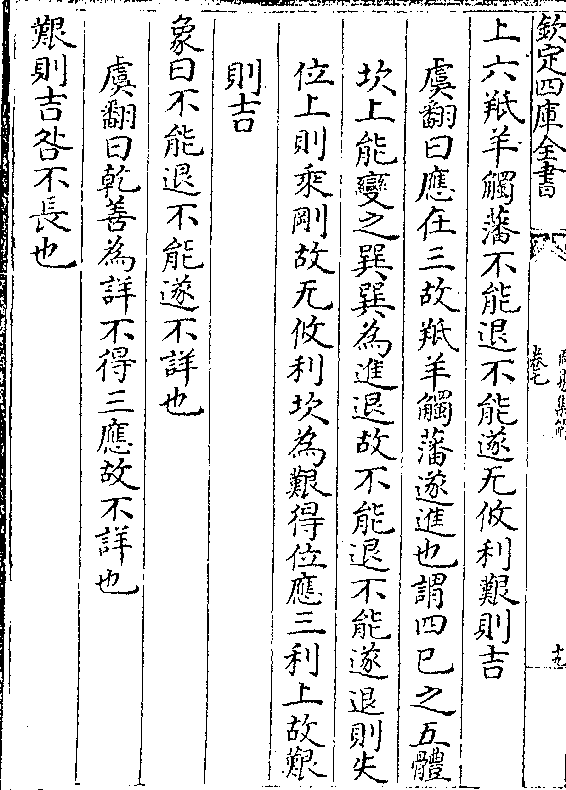 欽定四庫全書
周易集解
卷七
十九
上六羝羊觸藩不能退不能遂无攸利艱則吉
虞翻曰應在三故羝羊觸藩遂進也謂四已之五體
坎上能變之巽巽為進退故不能退不能遂退則失
位上則乘剛故无攸利坎為艱得位應三利上故艱
則吉
象曰不能退不能遂不詳也
虞翻曰乾善為詳不得三應故不詳也
艱則吉咎不長也